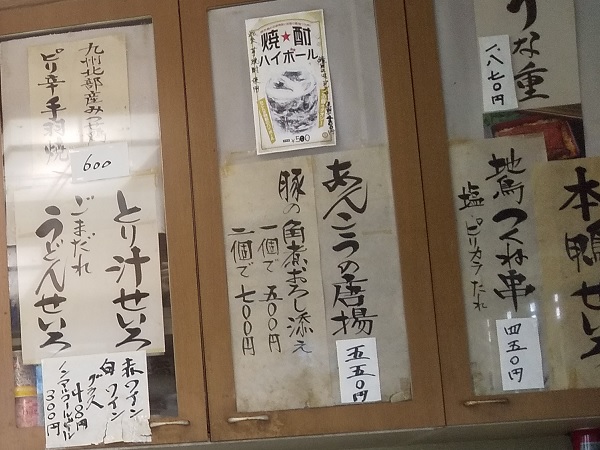 うな重
一八七〇円
地鳥つくね串
塩 ピリカラ たれ
四五〇円
本鴨せいろ
焼★酎
ハイボール
¥500
あんこうの唐揚
五五〇円
豚の角煮おろし添え
一個で 五〇〇円
二個で 七〇〇円
九州北部産みつせ
ピリ辛手羽焼
600
とり汁せいろ
ごまだれ
うどんせいろ
赤ワイン
白ワイン
グラス
ノンアルコールビール
300円